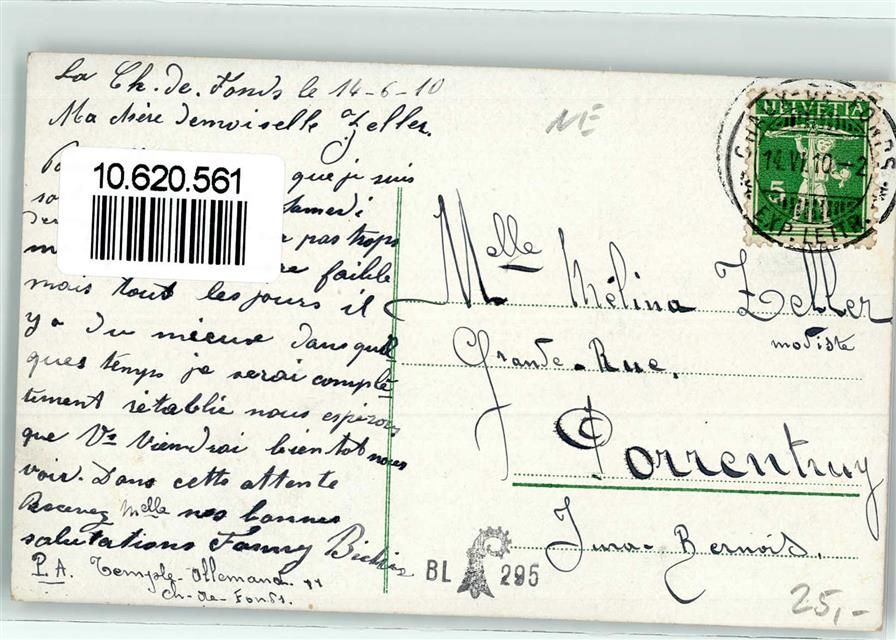 La Ch. de. Fonds le 14-6-10
Ma chère demoiselle Zeller.
10.620.561
que je suis
samedi
pas trop
faible
mais tout les jours il
y a du mieux dans quel
ques temps je serai complè
tement rétablie nous espérons
que Vs viendrai bientot nous
voir. Dans cette attente
Recevez Melle nos bonnes
salutations Fanny
P.A. Temple-Allemand
Ch-de-Fonds.
NE
HELVETIA
5
14.VI.10.-2
EXP. LETTR.
Melle
Mle Mélina Zeller
modiste
Grande-Rue.
Porrentruy
Jura-Bernois.
BL 295
25,-